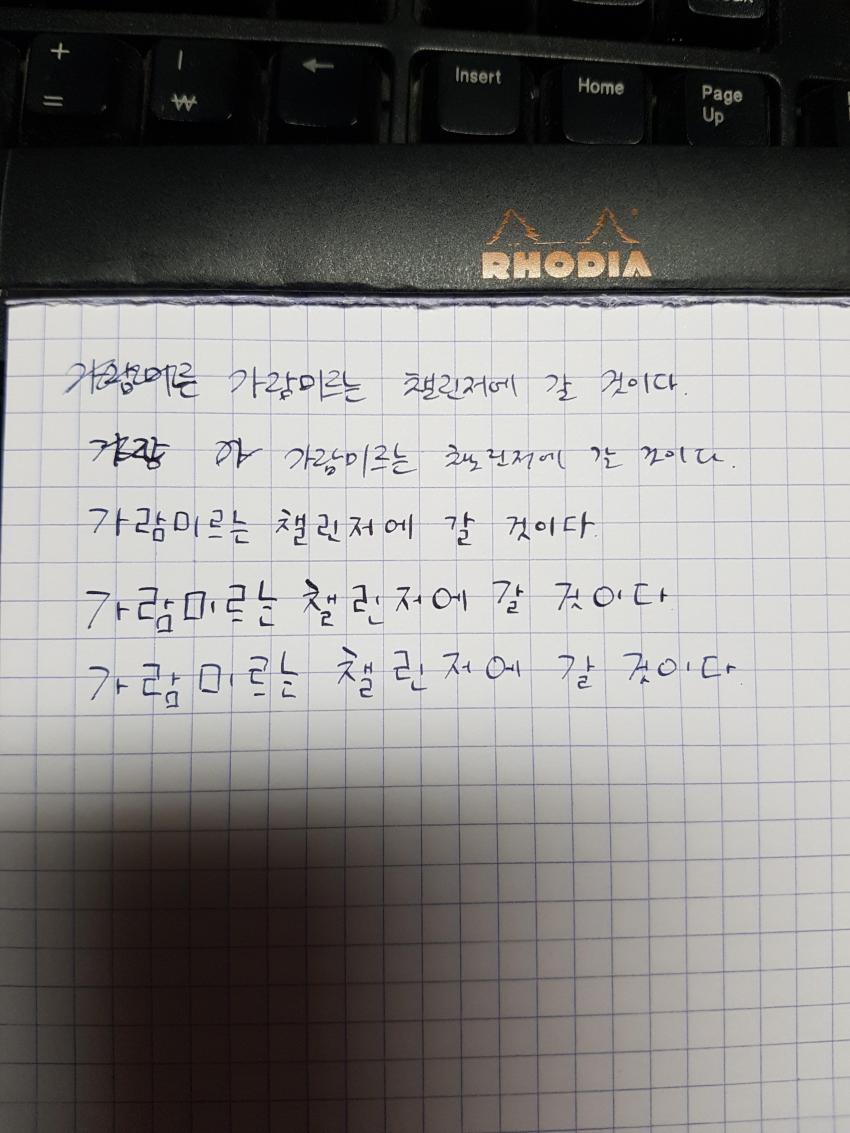 + | ← Insert Home Page
= ₩ Up
RHODIA
가람미르는 챌린저에 갈 것이다.
가람미르는 챌린저에 갈 것이다.
가람미르는 챌린저에 갈 것이다.
가람미르는 챌린저에 갈 것이다
가람미르는 챌린저에 갈 것이다.